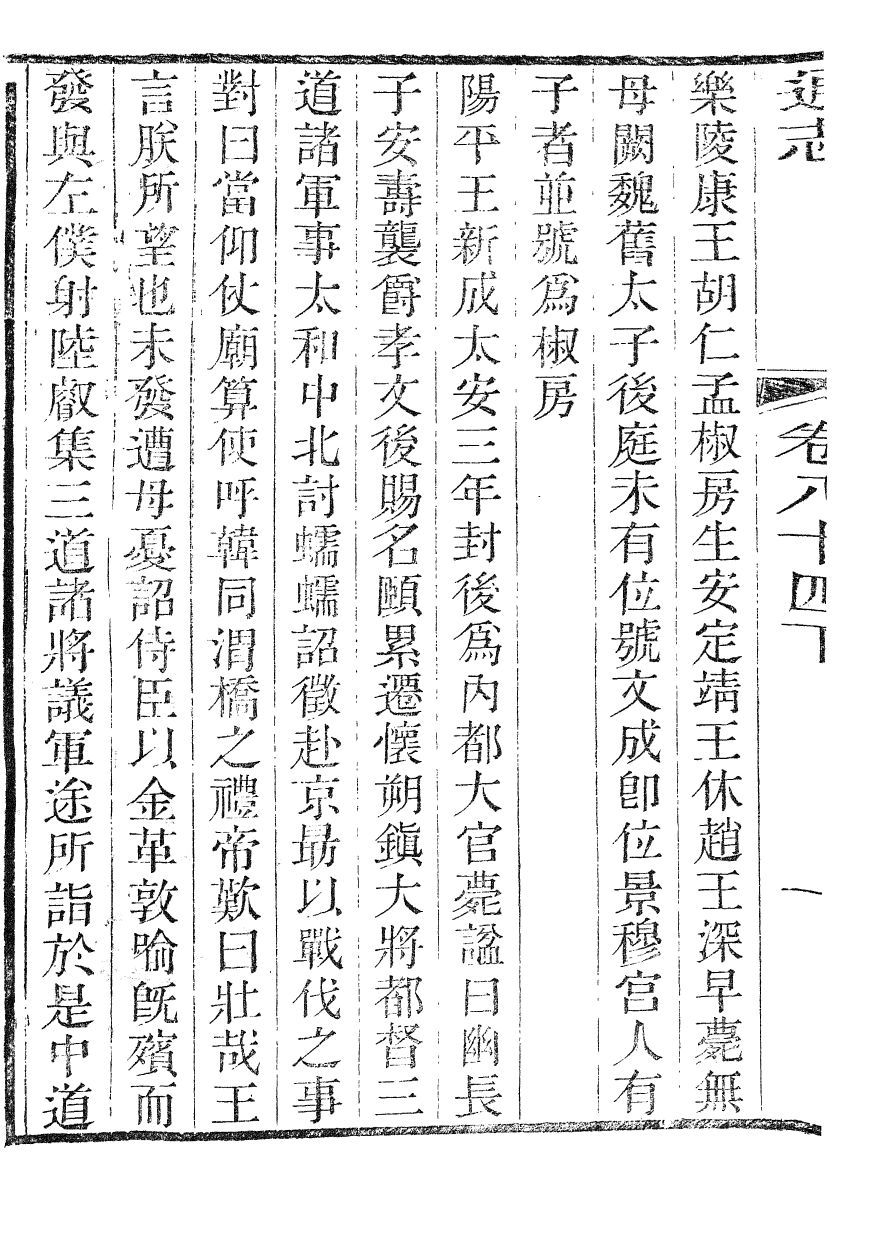 通志 卷八十四下 一
樂陵康王胡仁孟椒房生安定靖王休趙王深早薨無
母闕魏舊太子後庭未有位號文成卽位景穆宮人有
子者並號爲椒房
陽平王新成太安三年封後爲內都大官薨諡曰幽長
子安壽襲爵孝文後賜名頤累遷懷朔鎭大將都督三
道諸軍事太和中北討蠕蠕詔徵赴京勗以戰伐之事
對曰當仰仗廟算使呼韓同渭橋之禮帝歎曰壯哉王
言朕所望也未發遭母憂詔侍臣以金革敦喻旣殯而
發與左僕射陸叡集三道諸將議軍途所詣於是中道